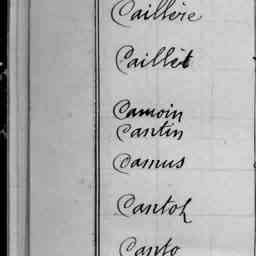 Caillère
Caillet
Camoin
Cantin
Camus
Cantol
Canto